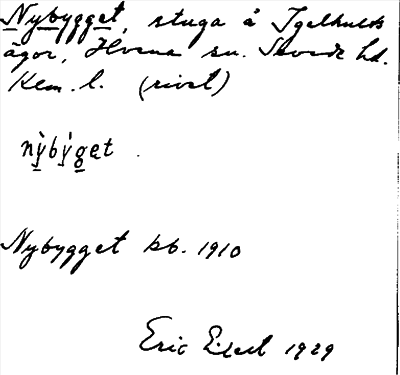 Nybygget, stuga å Igelhults
ägor, Hvena sn. Sevede hd.
Kalm. l. (rivet)
nỳbýget
Nybygget kb. 1910
Eric Elert 1929